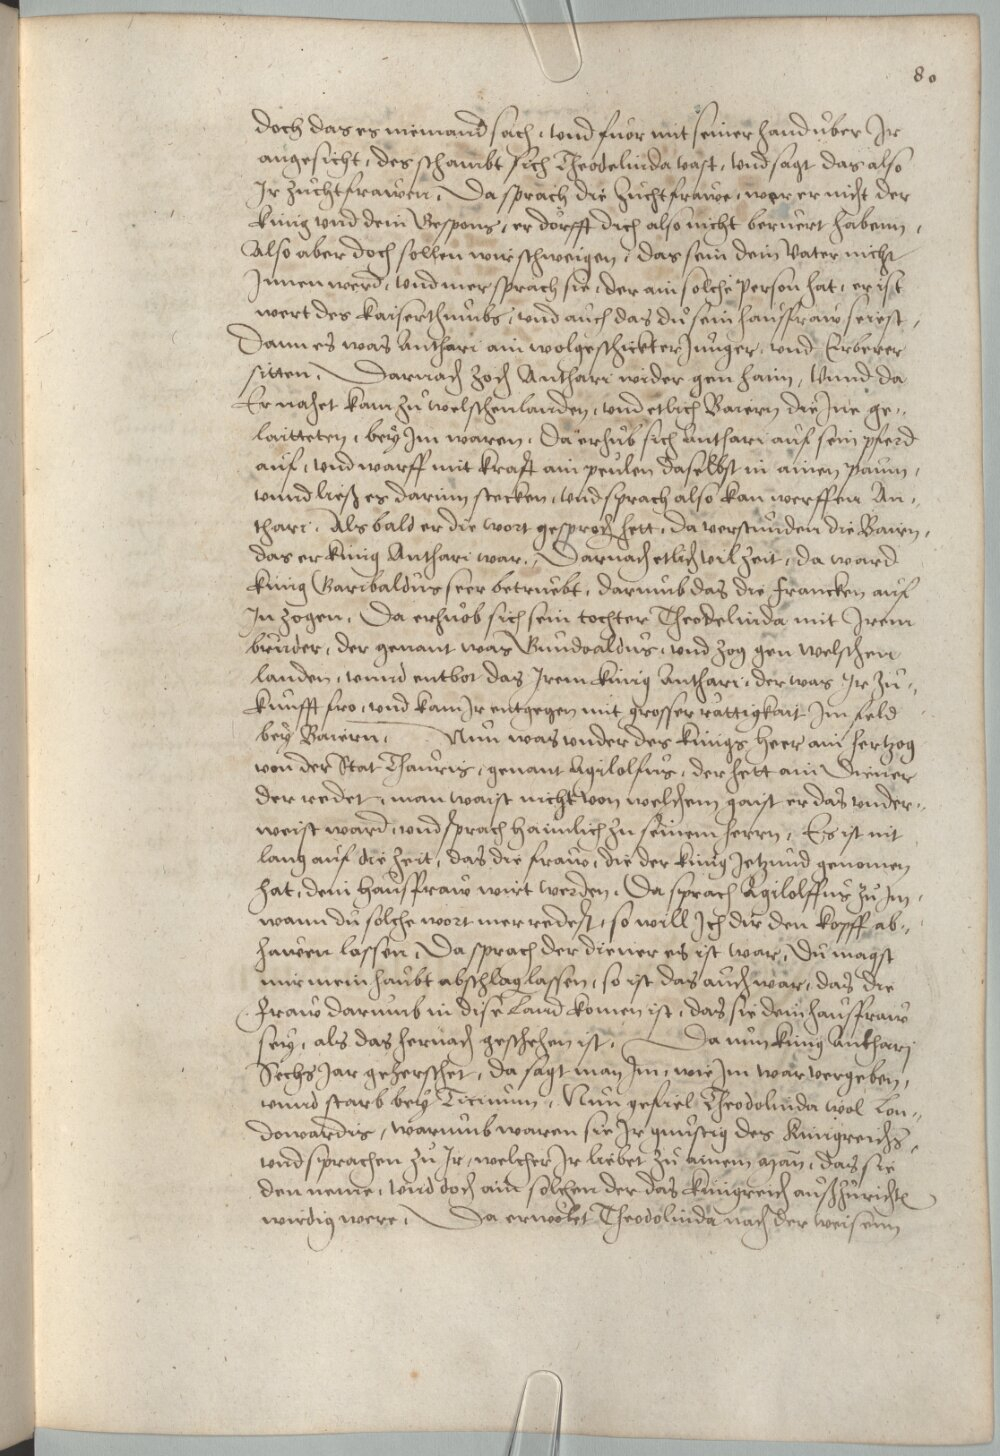 80
doch das es niemand sach, vnd fuor mit seiner hand über Ir
angesicht, des schambt sich Theodelinda vast, vnd sagt das also
Ir zuchtfrawen, Da sprach die zuchtfrawe, wer er nicht der
künig vnd dein Gespons, er dörfft dich also nicht beruert habenn,
Also aber doch sollen wir schweigen, das sein dein Vater nicht
Innen werd, vnd mer sprach sie, der ain solche person hat, er ist
wert des kaiserthumbs, vnd auch das du sein hausfraw seiest,
Dann es was Anthari ain wolgeschickter Junger, vnd Erberer
sitten. Darnach zoch Anthari wider gen haim, Vnnd da
Er nahet kam zu welschenlanden, vnd etlich Baiern die Jne ge-,
laitteten, beÿ Jm waren, Da erhub sich Anthari auf sein pferd
auf, vnd warff mit krafft ain peulen daselbst in ainen paum,
vnnd ließ es darinn stecken, vnd sprach also kan werffen An-,
thari. Als bald er die wort gesproch hett, da verstunden die Bairn,
das er künig Anthari war. Darnach etlich vil zeit, da ward
künig Garibaldus seer betruebt, darumb das die francken auf
In zogen, Da erhuob sich sein tochter Theodelinda mit Irem
bruder, der genant was Gundoaldus, vnd zog gen welschen
landen, vnnd entbot das Irem künig Anthari, der was Ir zu-,
kunfft fro, vnd kam Ir entgegen mit grosser rattigkait Im feld
beÿ Baiern. Nun was vnder des künigs heer ain hertzog
von der Stat Thauris, genant Agilolfus, der hett ain Diener
der redet, man waist nicht von welchem gaist er das vnder-,
weist ward, vnd sprach haimlich zu seinem herrn, Es ist nit
lang auf die Zeit, das die fraw, die der künig Jetzund genomen
hat, dein hausfraw wirt werden. Da sprach Agilolffus zu Im,
wann du solche wort mer redest, so will Ich dir den kopff ab-,
hawen lassen, Da sprach der diener es ist war, Du magst
mir mein haubt abschlag lassen, so ist das auch war, das die
Fraw darumb in dise Land komen ist, das sie dein hausfraw
seÿ, als das hernach geschehen ist. Da nun künig Anthari
Sechs Jar geherschet, da sagt man Im, wie Im war vergeben,
vnnd starb beÿ Ticinum, Nun gefiel Theodolinda wol Lon-,
dowardis, warumb waren sie Ir günstig des Künigreichs,
vnd sprachen zu Ir, welcher Ir liebet zu ainem man, das sie
den neme, vnd doch ain solchen der das künigreich außzuricht
wirdig were. Da erwolet Theodolinda nach der weisenn